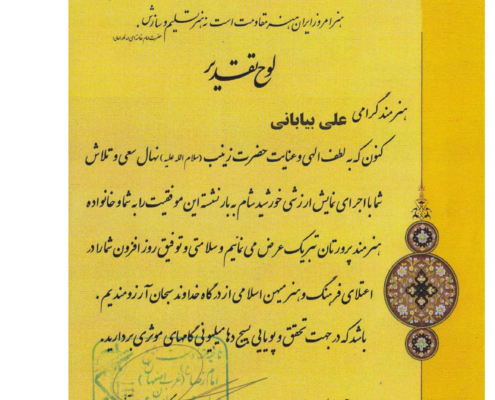 هنر امروز ایران هنر مقاومت است نه هنر تسلیم و سازش.
لوح تقدیر
هنرمند گرامی علی بیابانی
کنون که به لطف الهی و عنایت حضرت زینب (سلام الله علیه) نهال سعی و تلاش
شما با اجرای نمایش ارزشی خورشید شام به بار نشسته این موفقیت را به شما و خانواده
هنرمند پرورتان تبریک عرض می نمائیم و سلامتی و توفیق روز افزون شما را در
اعتلای فرهنگ و هنر میهن اسلامی از درگاه خداوند سبحان آرزومندیم.
باشد که در جهت تحقق و پویایی بسیج دهها میلیونی گامهای موثری بردارید.